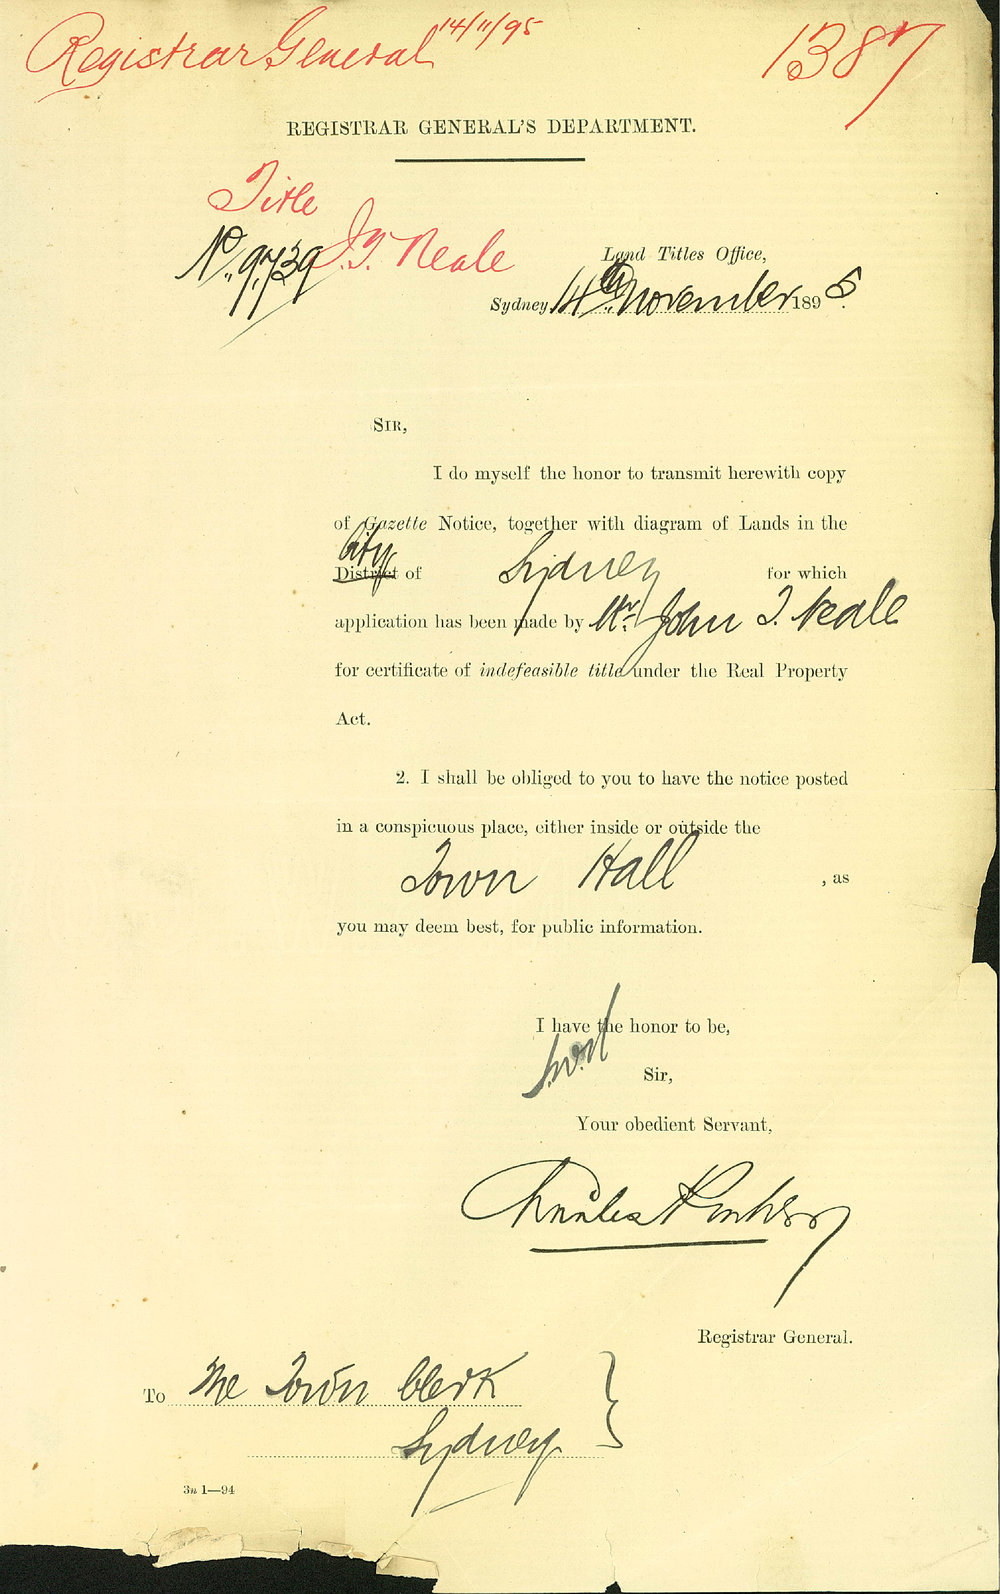 Registrar General 14/11/95
1387
REGISTRAR GENERAL'S DEPARTMENT.
Title
No. 9,739 J. T. Neale
Land Titles Office,
Sydney, 14th November 1895.
SIR,
I do myself the honor to transmit herewith copy
of Gazette Notice, together with diagram of Lands in the
City
District of Sydney for which
application has been made by Mr. John T. Neale
for certificate of indefeasible title under the Real Property
Act.
2. I shall be obliged to you to have the notice posted
in a conspicuous place, either inside or outside the
Town Hall, as
you may deem best, for public information.
I have the honor to be,
Sir,
Your obedient Servant,
Charles
Registrar General.
To The Town Clerk
Sydney
3n 1—94